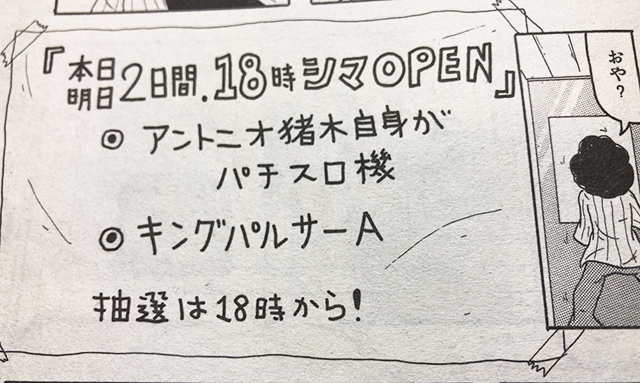 『本日明日2日間、18時シマOPEN』
◎ アントニオ猪木自身が
パチスロ機
◎ キングパルサーA
抽選は18時から!
おや?